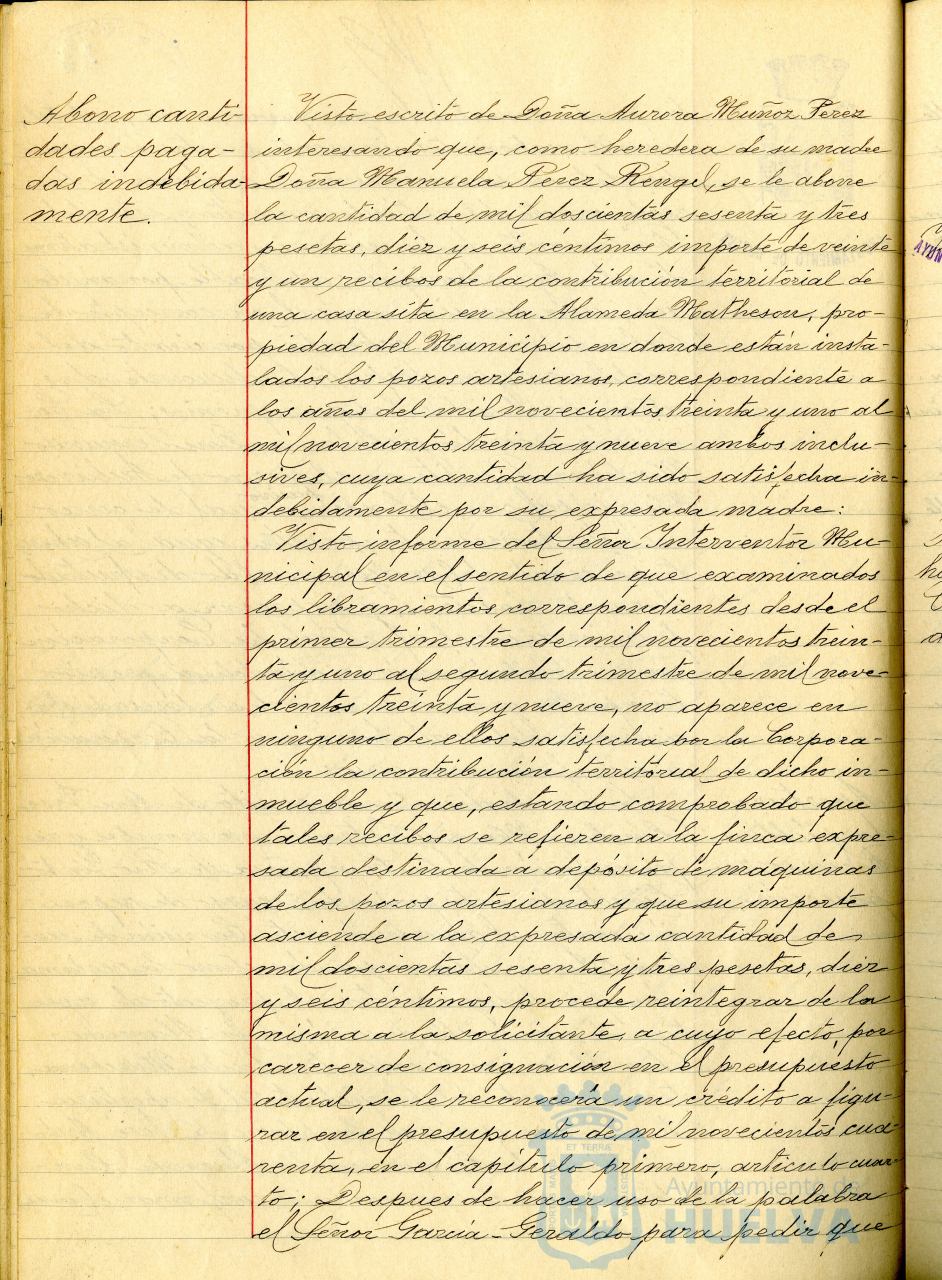 Abono canti-
dades paga-
das indebida-
mente.
Visto escrito de Doña Aurora Muñoz Perez
interesando que, como heredera de su madre
Doña Manuela Pérez Rengel, se le abone
la cantidad de mil doscientas sesenta y tres
pesetas, diez y seis céntimos importe de veinte
y un recibos de la contribución territorial de
una casa sita en la Alameda Matheson, pro-
piedad del Municipio en donde están insta-
lados los pozos artesianos, correspondiente a
los años del mil novecientos treinta y uno al
mil novecientos treinta y nueve ambos inclu-
sives, cuya cantidad ha sido satisfecha in-
debidamente por su expresada madre:
Visto informe del Señor Interventor Mu-
nicipal en el sentido de que examinados
los libramientos, correspondientes desde el
primer trimestre de mil novecientos trein-
ta y uno al segundo trimestre de mil nove-
cientos treinta y nueve, no aparece en
ninguno de ellos satisfecha por la Corpora-
ción la contribución territorial de dicho in-
mueble y que, estando comprobado que
tales recibos se refieren a la finca expre-
sada destinada a depósito de máquinas
de los pozos artesianos y que su importe
asciende a la expresada cantidad de
mil doscientas sesenta y tres pesetas, diez
y seis céntimos, procede reintegrar de la
misma a la solicitante, a cuyo efecto, por
carecer de consignación en el presupuesto
actual, se le reconocerá un crédito a figu-
rar en el presupuesto de mil novecientos cua-
renta, en el capítulo primero, articulo cuar-
to; Despues de hacer uso de la palabra
el Señor García-Geraldo para pedir que
Ayuntamiento de
HUELVA